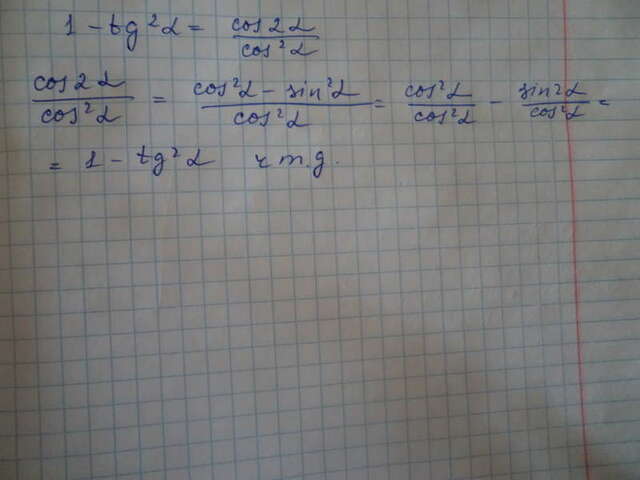 1 - tg²α = cos2α / cos²α
cos2α / cos²α = (cos²α - sin²α) / cos²α = cos²α / cos²α - sin²α / cos²α =
= 1 - tg²α ч т.д.